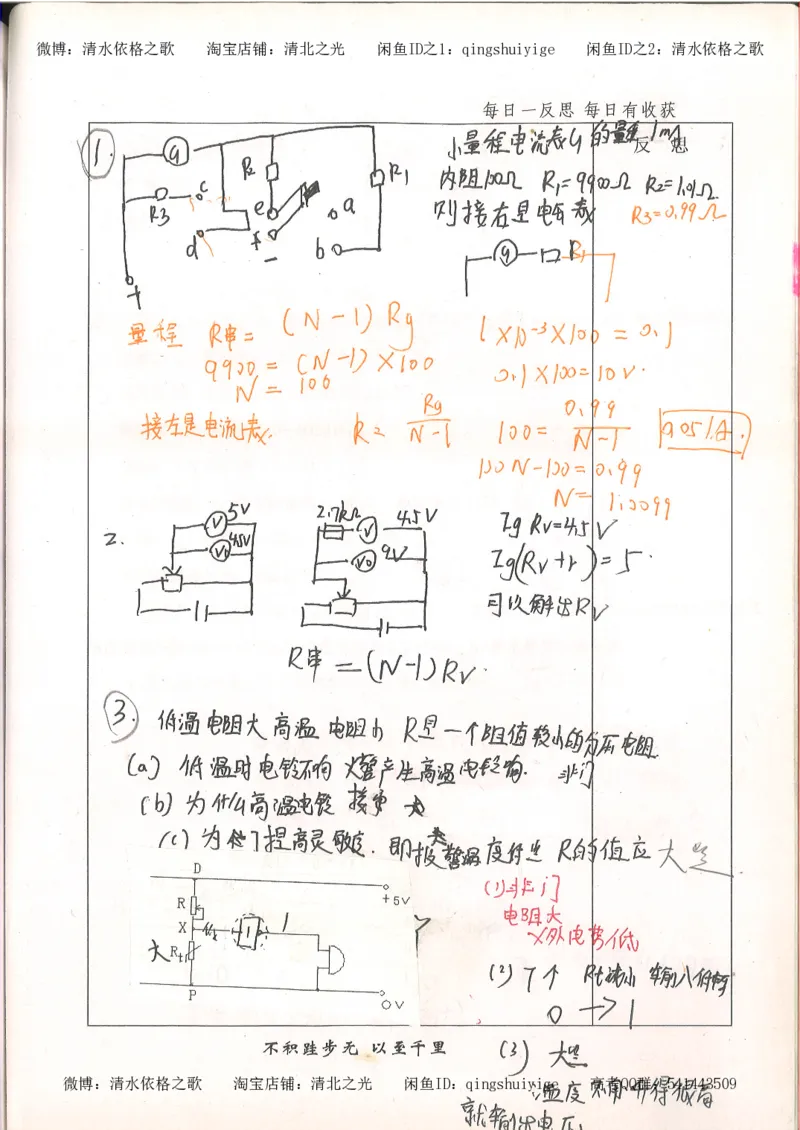 微博：清水依格之歌 淘宝店铺：清北之光 闲鱼ID之1：qingshuiyige 闲鱼ID之2：清水依格之歌
每日一反思 每日有收获
反 思
1.
G
R2
R1
R3
c
e
a
d
f
b
+
−
小量程电流表G的量程1mA
内阻100Ω R1=9900Ω R2=1.01Ω
R3=0.99Ω
则接右是电压表
G R1
量程 R串= (N-1) Rg
9900 = (N-1)×100
N = 100
1×10⁻³×100 = 0.1
0.1×100=10V.
接左是电流表.
R = Rg/(N-1)
100 = 0.99/(N-1)
0.051A.
100N-100=0.99
N= 1.0099
2.
V 5V
V0 4.5V
2.7kΩ V 4.5V
V0 9V
Ig Rv=4.5V
Ig(Rv+r)=5.
可以解出Rv
R串=(N-1)Rv.
3. 低温电阻大 高温 电阻小 R是一个阻值较小的分压电阻
(a) 低温时电铃不响 火警产生高温电铃响. 非门
(b) 为什么高温电铃
(c) 为了提高灵敏度. 即报警温度 R的值应 大些
D
+5V
R
X
1
1
大 Rt
P
0V
(1)非门
电阻大
X处电势低
(2) 输入
0→1
(3) 大些
不积跬步无 以至千里
微博：清水依格之歌 淘宝店铺：清北之光 闲鱼ID：qingshuiyige 高考QQ群：541443509
温度不用升得很高
就输出电压